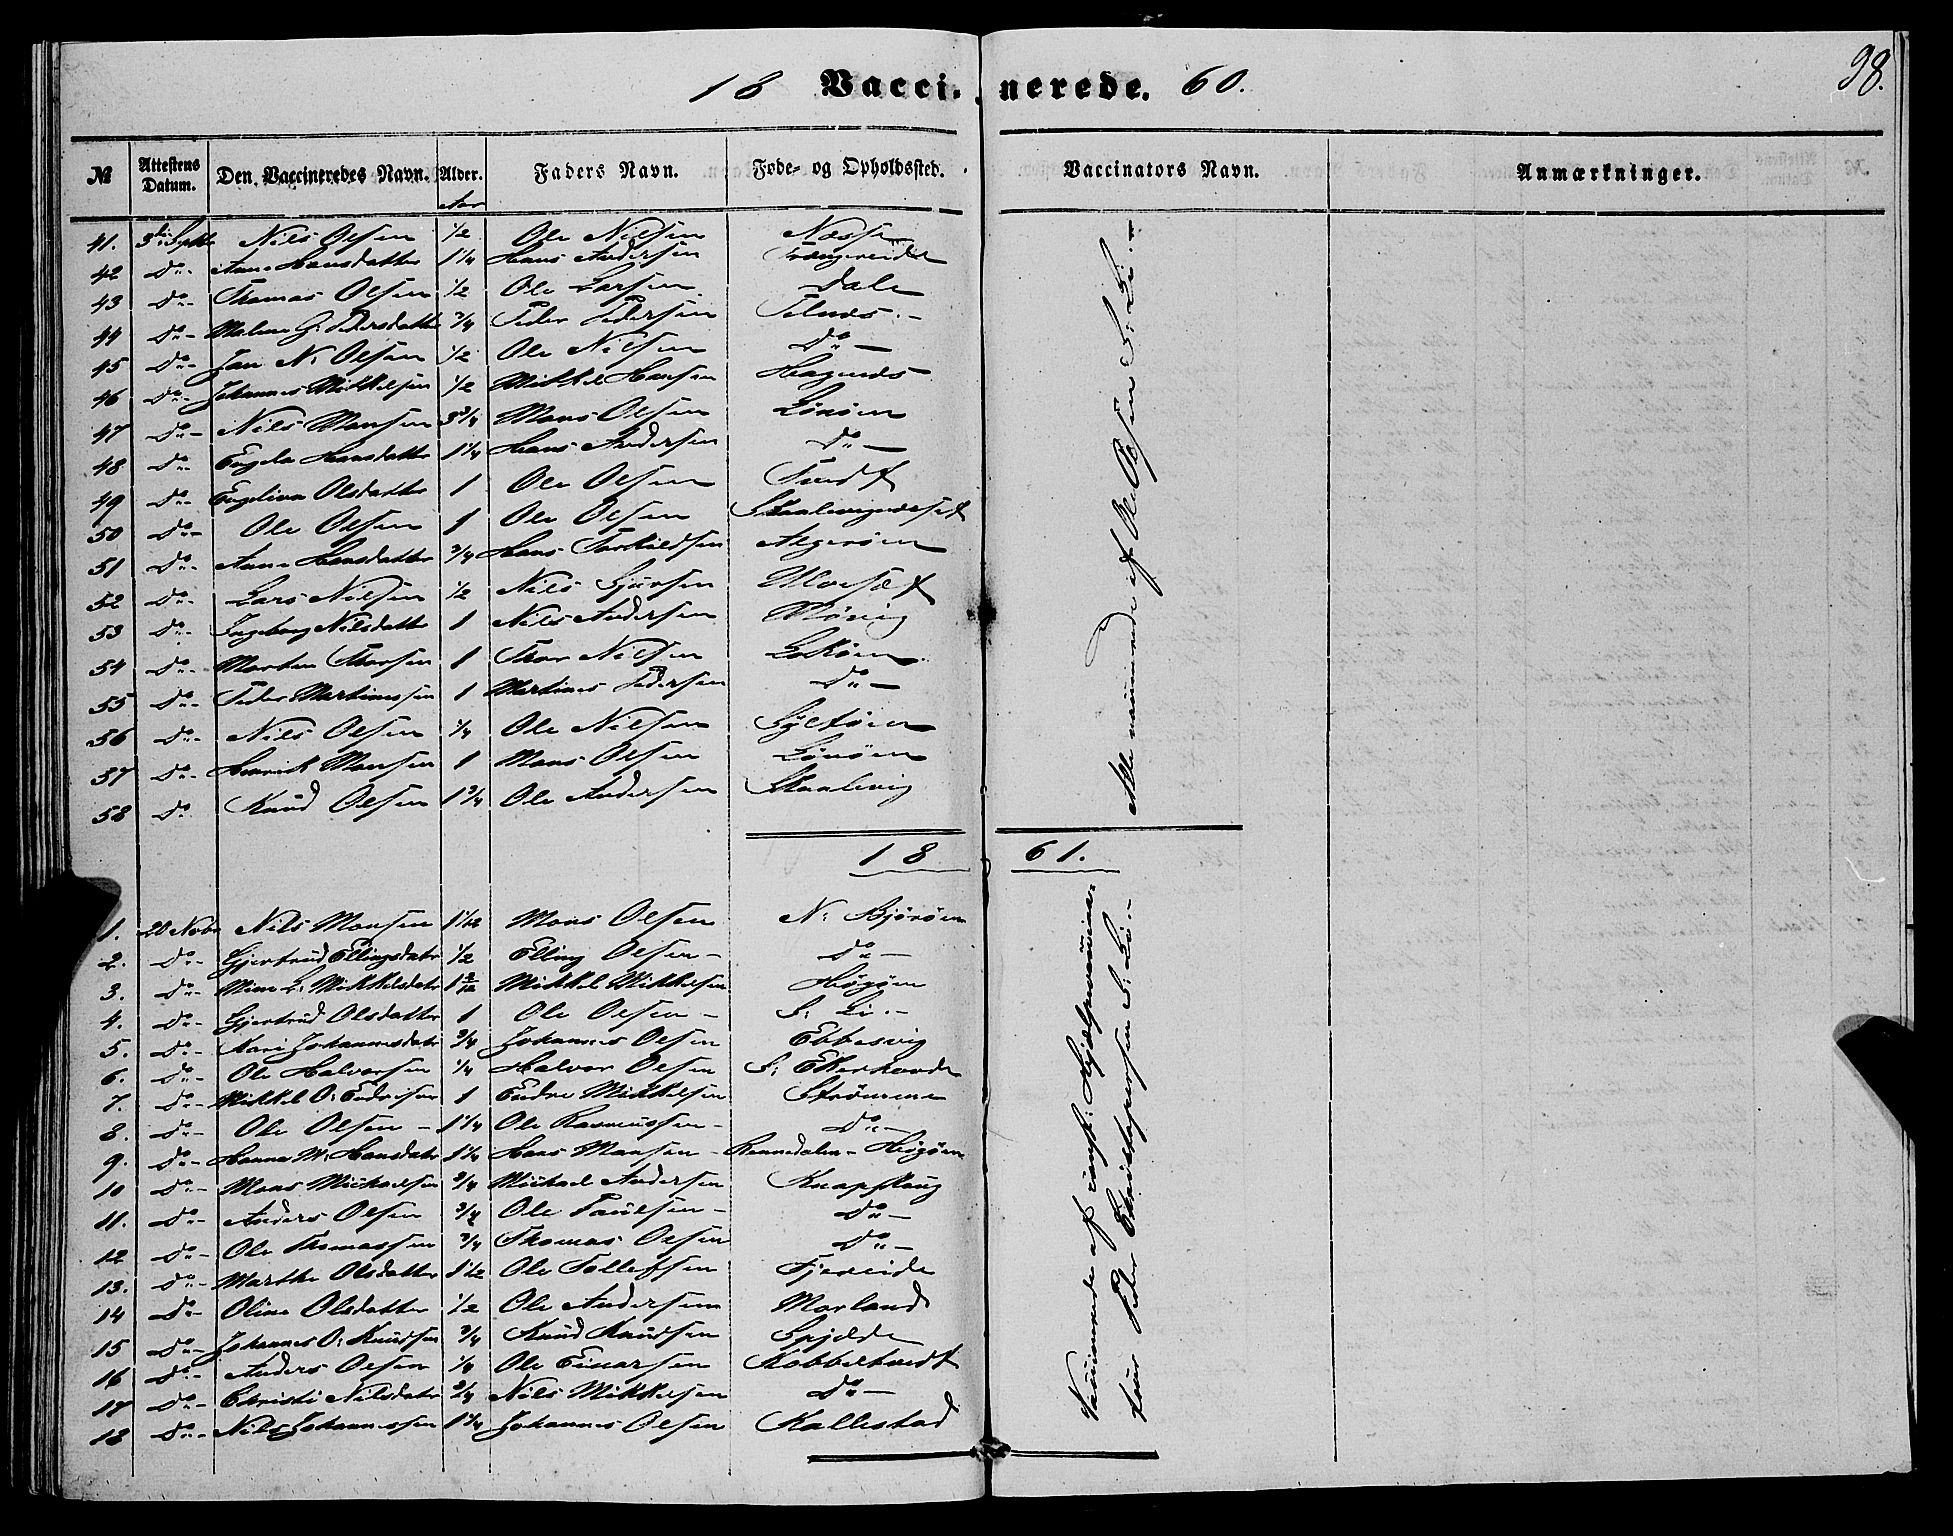 98.
18 Vaccinerede. 60.
№ Attestens Datum. Den Vaccineredes Navn. Alder. Faders Navn. Føde- og Opholdssted. Vaccinators Navn. Anmærkninger.
Aar
41. 3die Septbr Nils Olsen 1/2 Ole Nilsen Næsse
42 Do- Anne Hansdatter 1 1/4 Hans Andersen Trængereidet
43 Do- Thomas Olsen 1/2 Ole Larsen Dale
44 Do- Malene G: Pedersdatter 3/4 Peder Pedersen Telnæs.-
45 Do- Jan N: Olsen 1/2 Ole Nilsen Do-
46 Do- Johannes Mikkelsen 1/2 Mikkel Hansen Hagenæs
47 Do- Nils Monsen 3 3/4 Mons Olsen Lønøen
48 Do- Engela Hansdatter 1 1/4 Hans Andersen Do-
49 Do- Engelina Olsdatter 1 Ole Olsen Tvedt
50 Do- Ole Olsen 1 Ole Olsen
51 Do- Anne Hansdatter 3/4 Hans Torkildsen Algerøen
52 Do- Lars Nilsen 1/2 Nils Sjursen Ulvesæt
53 Do- Ingeborg Nilsdatter 1 Nils Andersen Møvig
54 Do- Morten Thorsen 1 Thor Nilsen Lokøen
55 Do- Peder Martinussen 1 Martines Pedersen Do-
56 Do- Nils Olsen 1/4 Ole Nilsen Syltøen
57 Do- Henrick Monsen 1 Mons Olsen Lønøen
58 Do Knud Olsen 1 3/4 Ole Andersen Skaalevig
Alle vaccinerede af Ole Olsen S: Li.-
18 61.
1. 20 Novbr Nils Monsen 1 1/12 Mons Olsen N: Bjørøen
2. Do- Gjertrud Ellingsdatr 1/2 Elling Olsen- Do-
3. Do- Mikkelsdatr 1 2/12 Mikkel Mikkelsen Høgøen
4. Do- Gjertrud Olsdatter 1 Ole Olsen- S: Li.-
5. Do- Kari Johannesdatr 3/4 Johannes Olsen Ebbesvig
6. Do- Ole Halvorsen 1/4 Halvor Olsen S: Ekerhovde
7. Do- Mikkel O: Endresen 1 Endre Mikkelsen Strømme
8. Do- Ole Olsen- 1 1/4 Ole Rasmussen- Do-
9. Do- Hanna M: Hansdatr 1 1/4 Hans Monsen- Rennedalen- Høgøen
10 Do- Mons Michaelsen 3/4 Michael Andersen Knapskoug
11. Do- Anders Olsen 3/4 Ole Paulsen- Do-
12 Do- Ole Thomassen 3/4 Thomas Olsen Do-
13. Do- Marthe Olsdatter 1 1/2 Ole Tollefsen Fjereide
14 Do- Oline Olsdatter 1/2 Ole Andersen Morland
15 Do- Johannes O: Knudsen 3/4 Knud Knudsen Spjelde
16 Do- Anders Olsen 1/4 Ole Einarsen Kobbertvedt
17 Do- Christi Nilsdatr 3/4 Nils Mikkelsen Do-
18 Do- Nils Johannessen 1 1/4 Johannes Olsen Kallestad
Vaccinerede af Hjælpevaccina-
teur Peder Christophersen S: Li.-